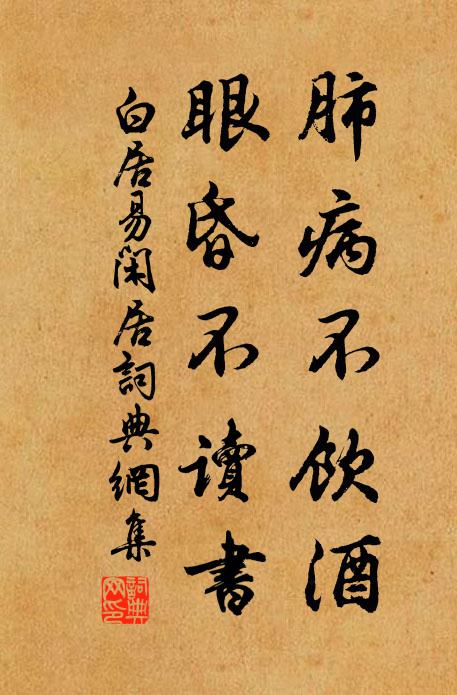 肺病不飲酒
眼昏不讀書
白居易閑居詞典網集
詞典
网印